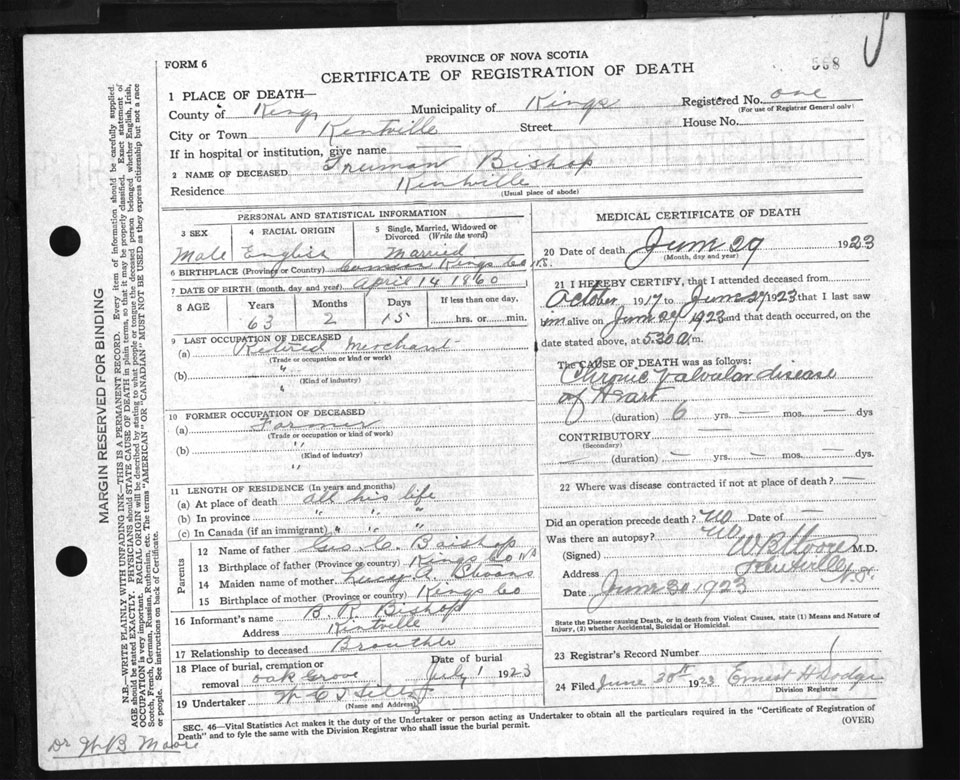 FORM 6
PROVINCE OF NOVA SCOTIA
568
CERTIFICATE OF REGISTRATION OF DEATH
1 PLACE OF DEATH—
County of Kings Municipality of Kings Registered No. one
(For use of Registrar General only)
City or Town Kentville Street House No.
If in hospital or institution, give name
2 NAME OF DECEASED Freeman Bishop
Residence Kentville
(Usual place of abode)
PERSONAL AND STATISTICAL INFORMATION
3 SEX 4 RACIAL ORIGIN 5 Single, Married, Widowed or Divorced (Write the word)
Male English Married
6 BIRTHPLACE (Province or Country) Kings Co N.S.
7 DATE OF BIRTH (month, day and year) April 14 1860
8 AGE Years Months Days If less than one day,
63 2 15 hrs. or min.
9 LAST OCCUPATION OF DECEASED
(a) Retired Merchant
(Trade or occupation or kind of work)
(b) "
(Kind of industry)
"
10 FORMER OCCUPATION OF DECEASED
(a) Farmer
(Trade or occupation or kind of work)
(b) "
(Kind of industry)
"
11 LENGTH OF RESIDENCE (In years and months)
(a) At place of death all his life
(b) In province " " "
(c) In Canada (if an immigrant) " " "
Parents
12 Name of father Geo. C. Baishop
13 Birthplace of father (Province or country) Kings Co N S
14 Maiden name of mother
15 Birthplace of mother (Province or country) Kings Co
16 Informant's name B. R. Bishop
Address Kintville
17 Relationship to deceased Brouther
18 Place of burial, cremation or removal Oak Grove Date of burial July 1 1923
19 Undertaker
(Name and Address)
MEDICAL CERTIFICATE OF DEATH
20 Date of death June 29 1923
(Month, day and year)
21 I HEREBY CERTIFY, that I attended deceased from
October 1917 to June 29 1923 that I last saw
him alive on June 29 1923 and that death occurred, on the
date stated above, at 5.30 a m.
The CAUSE OF DEATH was as follows:
Chronic Valvular disease
of Heart
(duration) 6 yrs. — mos. — dys
CONTRIBUTORY —
(Secondary)
— (duration) — yrs. — mos. — dys.
22 Where was disease contracted if not at place of death? —
Did an operation precede death? No Date of —
Was there an autopsy? No
(Signed) W B Moore M.D.
Address Kentville N.S.
Date June 30 1923
State the Disease causing Death, or in death from Violent Causes, state (1) Means and Nature of Injury, (2) whether Accidental, Suicidal or Homicidal.
23 Registrar's Record Number 1
24 Filed June 30th 1923 Ernest H Dodge
Division Registrar
SEC. 46—Vital Statistics Act makes it the duty of the Undertaker or person acting as Undertaker to obtain all the particulars required in the "Certificate of Registration of
Death" and to fyle the same with the Division Registrar who shall issue the burial permit.
(OVER)
Dr W B Moore
MARGIN RESERVED FOR BINDING
N.B.—WRITE PLAINLY WITH UNFADING INK—THIS IS A PERMANENT RECORD. Every item of information should be carefully supplied.
AGE should be stated EXACTLY. PHYSICIANS should STATE CAUSE OF DEATH in plain terms, so that it may be properly classified. Exact statement of
OCCUPATION is very important. RACIAL ORIGIN will be described by stating to what people or tongue the deceased person belonged whether English, Irish,
Scotch, French, German, Russian, Ruthenian, etc. The terms "AMERICAN" OR "CANADIAN" MUST NOT BE USED as they express citizenship but not a race
or people. See instructions on back of Certificate.